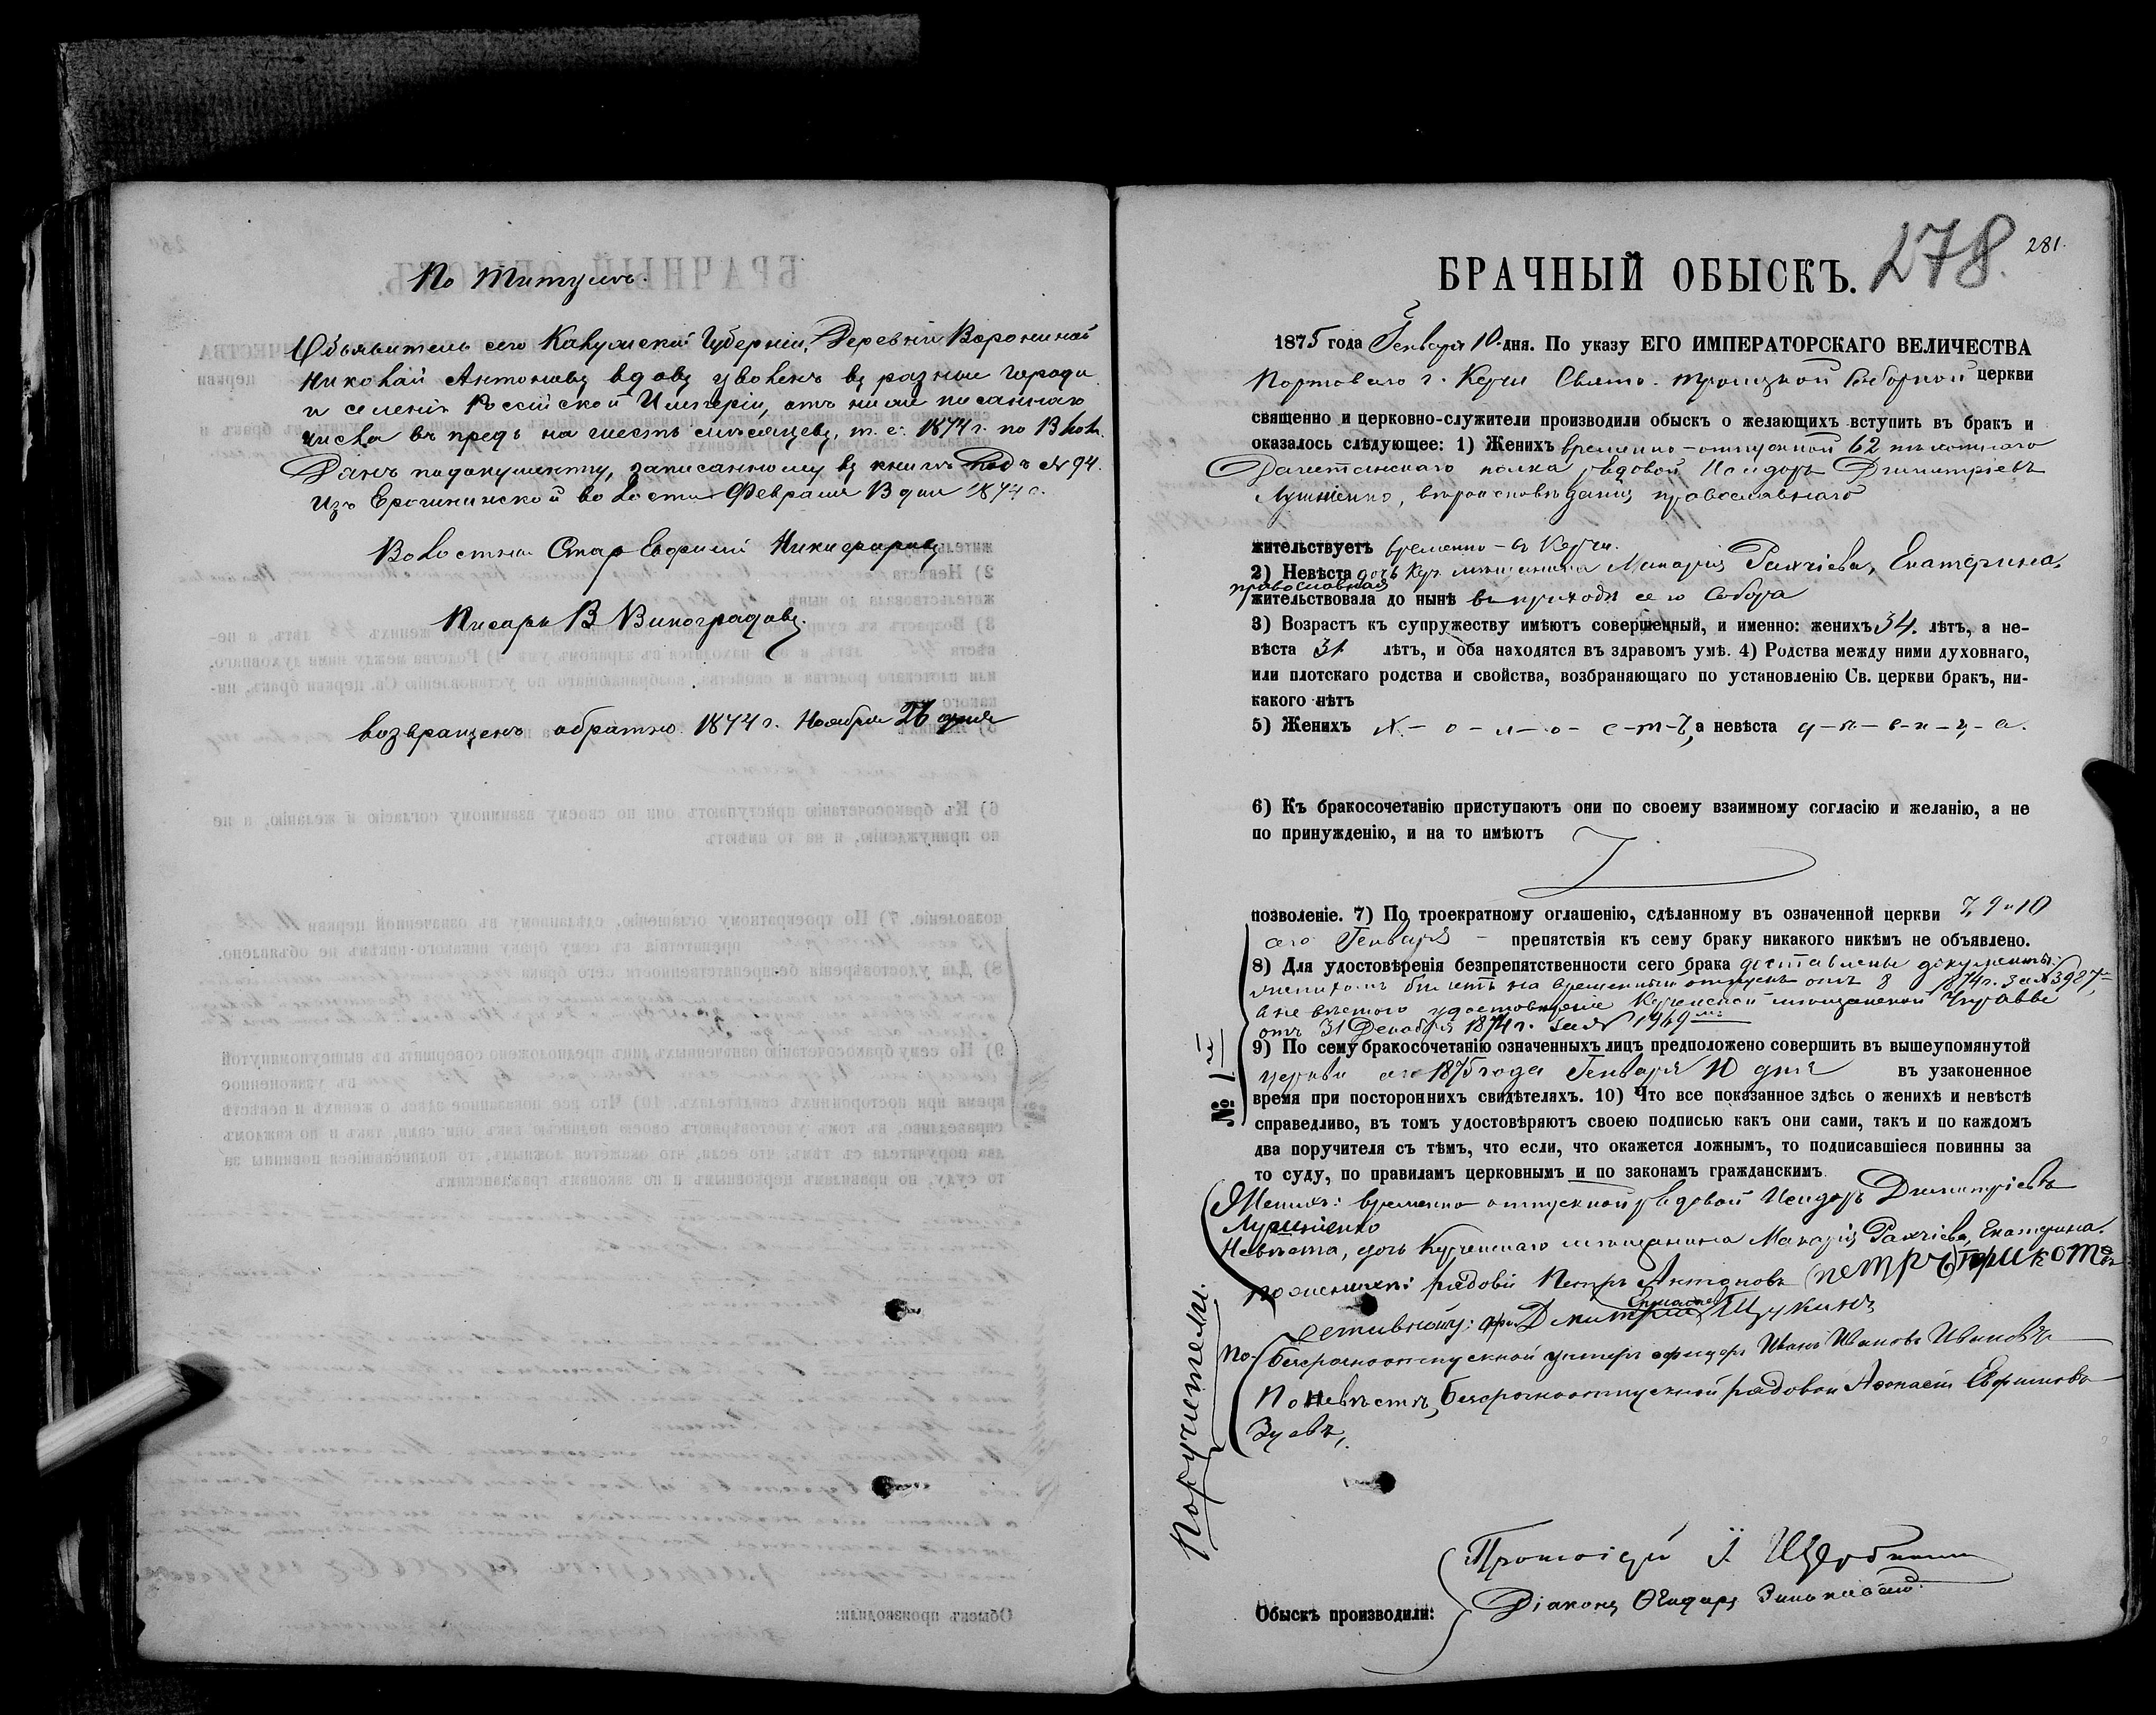 По титулѣ.
Объявитель сего Калужской Губерніи, Деревни Ворониной
Николай Антоновъ вдовъ уволенъ въ разные города
и селенія Россійской Имперіи, отъ ниже писаннаго
числа въ предь на шесть мѣсяцевъ, т. е. 1874 г. по 13
Данъ по документу, записанному въ книгѣ подъ № 94.
Изъ волости Февраля 13 дня 1874 г.
Волостной Стар Евфимій Никифоровъ
Писарь В Виноградовъ.
возвращенъ обратно 1874 г. Ноября 26 дня
278. 281.
БРАЧНЫЙ ОБЫСКЪ.
1875 года Генваря 10 дня. По указу ЕГО ИМПЕРАТОРСКАГО ВЕЛИЧЕСТВА
Портоваго г. Керчи Свято-Троицкой Соборной церкви
священно и церковно-служители производили обыскъ о желающихъ вступить въ бракъ и
оказалось слѣдующее: 1) Женихъ временно-отпускной 62 пѣхотнаго
Дагестанскаго полка рядовой Исидоръ Димитріевъ
вѣроисповѣданія православнаго
жительствуетъ временно - въ Керчи.
2) Невѣста дочь Кер. мѣщанина Макарія Екатерина,
православная
жительствовала до нынѣ въ приходѣ сего Собора
3) Возрастъ къ супружеству имѣютъ совершенный, и именно: женихъ 34. лѣтъ, а не-
вѣста 31 лѣтъ, и оба находятся въ здравомъ умѣ. 4) Родства между ними духовнаго,
или плотскаго родства и свойства, возбраняющаго по установленію Св. церкви бракъ, ни-
какого нѣтъ
5) Женихъ х-о-л-о-с-т-ъ, а невѣста д-ѣ-в-и-ц-а.
6) Къ бракосочетанію приступаютъ они по своему взаимному согласію и желанію, а не
по принужденію, и на то имѣютъ
позволеніе. 7) По троекратному оглашенію, сдѣланному въ означенной церкви 7, 9 и 10
сего Генваря - препятствія къ сему браку никакого никѣмъ не объявлено.
8) Для удостовѣренія безпрепятственности сего брака доставлены документы:
женихомъ билетъ на временный отпускъ отъ 8 874 г. за № 3987
а невѣстою удостовѣреніе Керченской мѣщанской Управы
отъ 31 Декабря 1874 г. за № 1969
9) По сему бракосочетанію означенныхъ лицъ предположено совершить въ вышеупомянутой
церкви сего 1875 года Генваря 10 дня въ узаконенное
время при постороннихъ свидѣтеляхъ. 10) Что все показанное здѣсь о женихѣ и невѣстѣ
справедливо, въ томъ удостовѣряютъ своею подписью какъ они сами, такъ и по каждомъ
два поручителя съ тѣмъ, что если, что окажется ложнымъ, то подписавшіеся повинны за
то суду, по правиламъ церковнымъ и по законамъ гражданскимъ
№ 1й
Женихъ: временно отпускной рядовой Исидоръ Димитріевъ
Невѣста, дочь Керченскаго мѣщанина Макарія Екатерина.
Поручители.
по женихѣ: рядовой Петръ Антоновъ
Щукинъ
По безсрочноотпускной унтеръ офицеръ Иванъ Ивановъ Ивановъ
По невѣстѣ, безсрочноотпускной рядовой Аѳанасій Евфимовъ
Зуевъ,
Обыскъ производили:
Протоіерей І.
Діаконъ